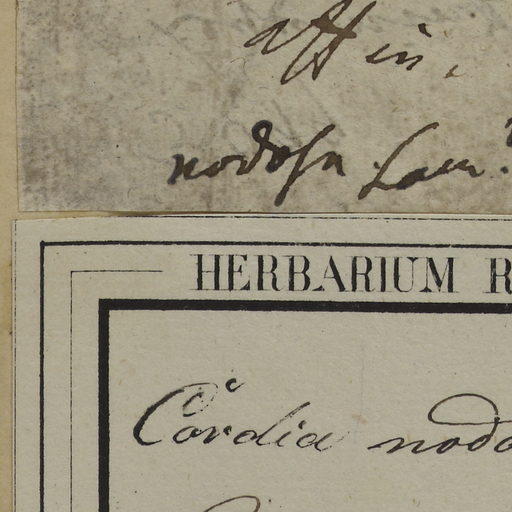 affin.
nodosa Lam.
HERBARIUM R
Cordia nodo